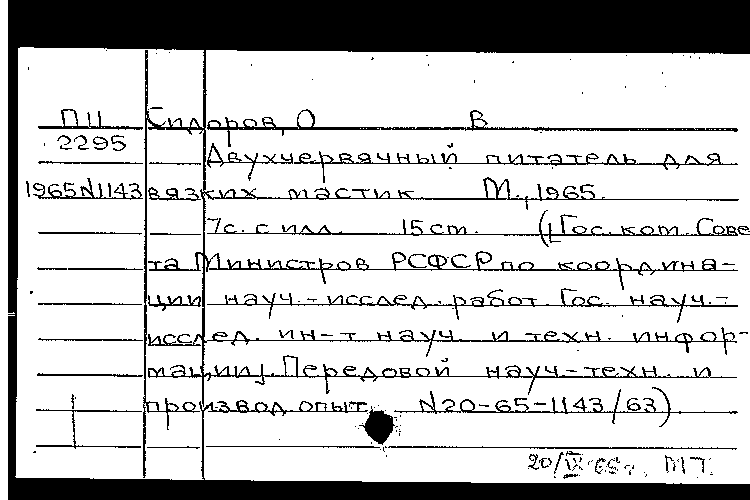 ПЦ Сидоров, О В
2295 Двухчервячный питатель для
1965 N1143 вязких мастик М., 1965.
7с. с илл. 15 cm. ([Гос. ком. Сове
та Министров РСФСР по координа-
ции науч.-исслед. работ. Гос. науч.-
исслед. ин-т науч. и техн. инфор-
мации]. Передовой науч-техн. и
производ. опыт N20-65-1143/63).
20/IX-65г. МТ.